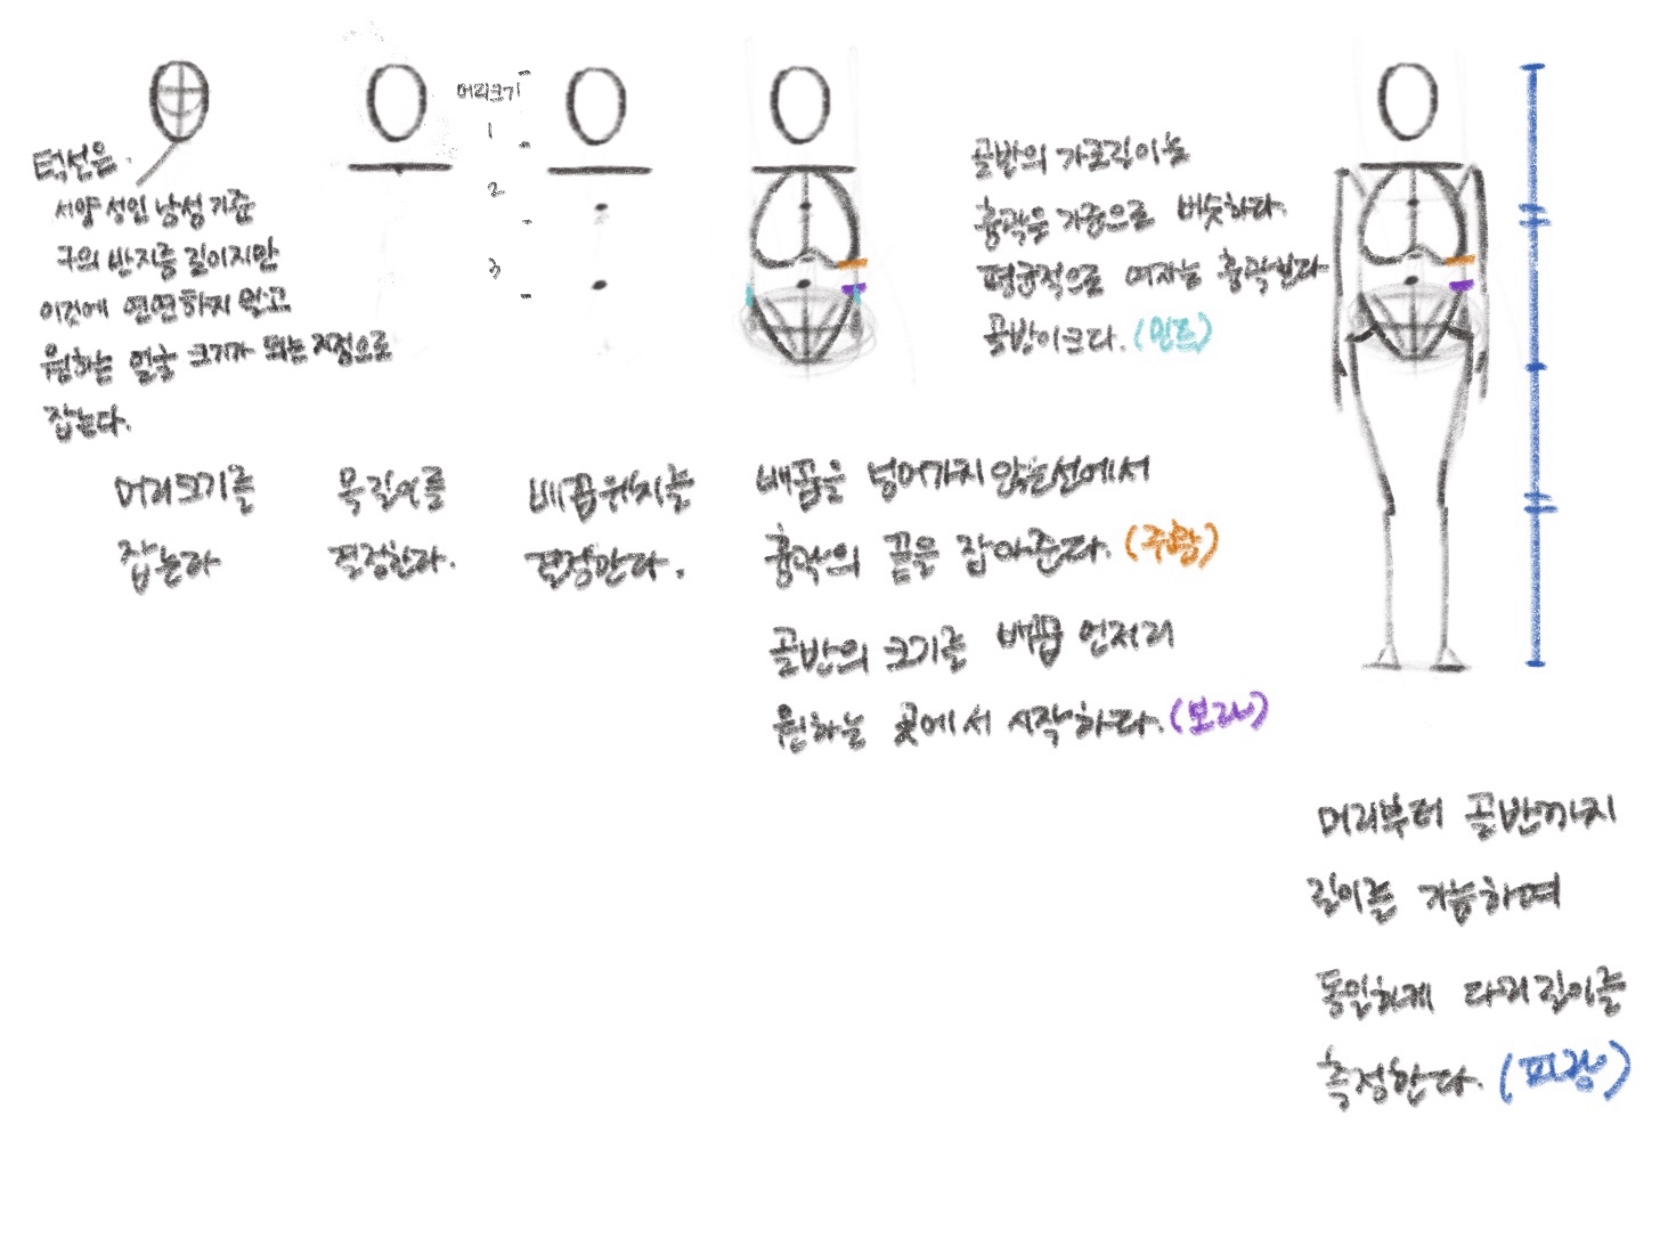 턱선은
서양 성인 남성 기준
구의 반지름 길이지만
이것에 연연하지 말고
원하는 얼굴 크기가 되는 지점으로
잡는다.
머리크기를
잡는다
목길이를
결정한다.
머리크기
1
2
3
배꼽위치를
결정한다.
배꼽을 넘어가지 않는선에서
흉곽의 끝을 잡아준다. (주황)
골반의 크기를 배꼽 언저리
원하는 곳에서 시작하다. (보라)
골반의 가로길이는
흉곽을 기준으로 비슷하다.
평균적으로 여자는 흉곽보다
골반이크다. (민트)
머리부터 골반까지
길이를 가늠하며
동일하게 다리길이를
측정한다. (파랑)